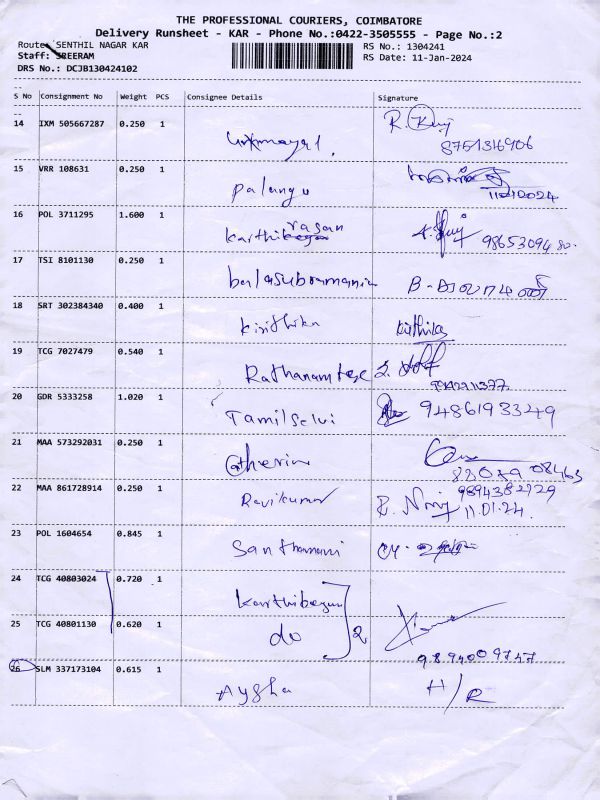 THE PROFESSIONAL COURIERS, COIMBATORE
Delivery Runsheet - KAR - Phone No.:0422-3505555 - Page No.:2
Route: SENTHIL NAGAR KAR RS No.: 1304241
Staff: SREERAM RS Date: 11-Jan-2024
DRS No.: DCJB130424102
S No Consignment No Weight PCS Consignee Details Signature
14 IXM 505667287 0.250 1 R.
8751316906
15 VRR 108631 0.250 1 Palangu
16 POL 3711295 1.600 1 rasan
Karthibegan
17 TSI 8101130 0.250 1 balasubramanin
18 SRT 302384340 0.400 1 Kirithika Kirthika
19 TCG 7027479 0.540 1 Rathanam
20 GDR 5333258 1.020 1 Tamilselvi 9486193349
21 MAA 573292031 0.250 1 Catherin
88079 08463
22 MAA 861728914 0.250 1 Ravikumar 9894382729
11.01.24
23 POL 1604654 0.845 1 Santhamani
24 TCG 40803024 0.720 1 Karthibegan
25 TCG 40801130 0.620 1 do 2
9894009747
26 SLM 337173104 0.615 1 Aysha H/R